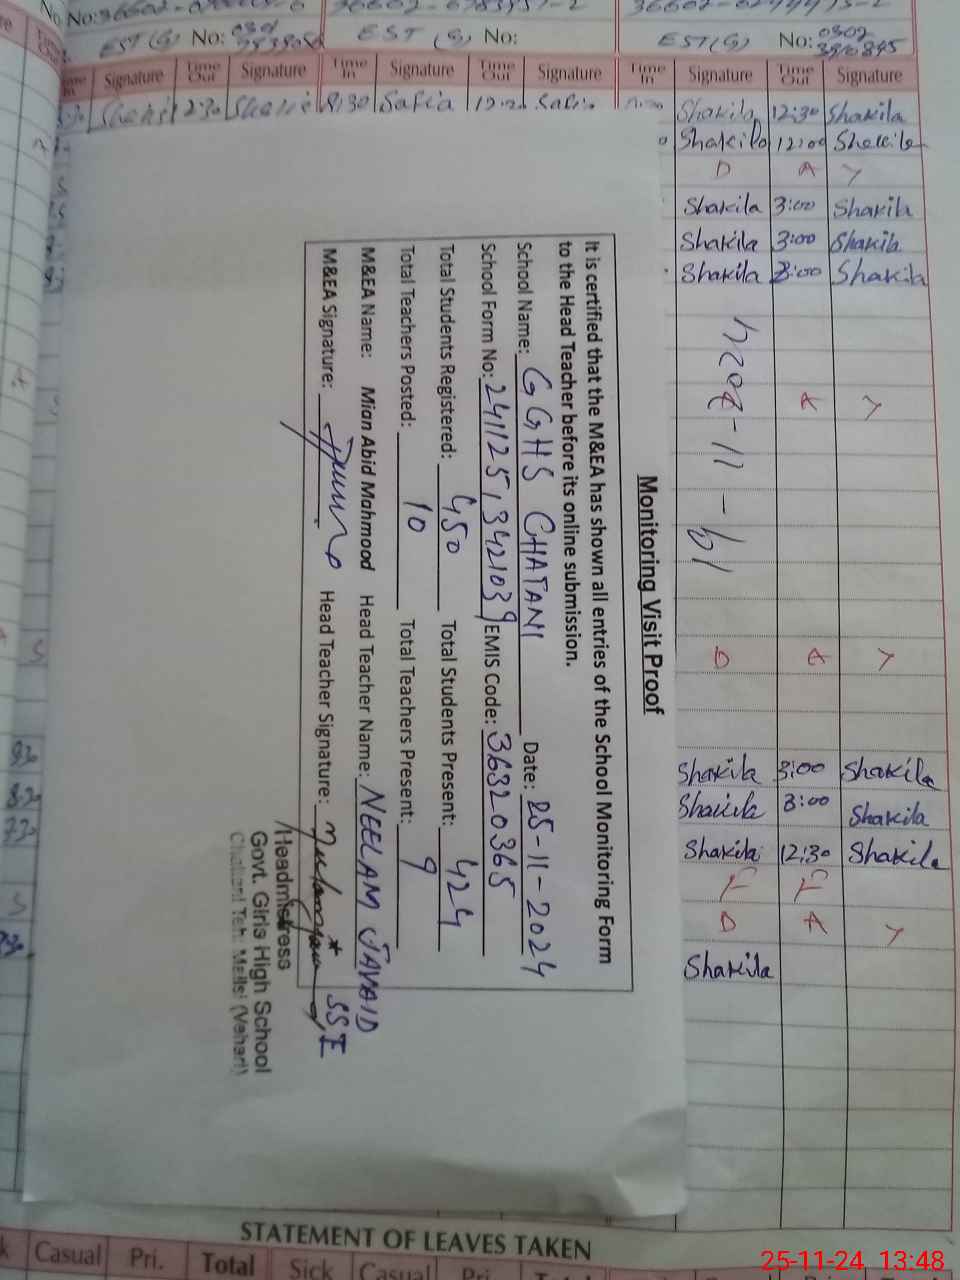 EST (S) No: EST (S) No: EST (S) No: 0302
Signature Time Out Signature Time In Signature Time Out Signature Time In Signature Time Out Signature
8:30 Safia Shakila 12:30 Shakila
Shakila 12:00
D A Y
Shakila 3:00 Shakila
Shakila 3:00 Shakila
Shakila 3:00 Shakila
19-11-2024
A Y
D A Y
Shakila 3:00 Shakila
Shakila 3:00 Shakila
Shakila 12:30 Shakila
F F
D A Y
Shakila
Monitoring Visit Proof
It is certified that the M&EA has shown all entries of the School Monitoring Form
to the Head Teacher before its online submission.
School Name: GGHS CHATANI Date: 25-11-2024
School Form No: 241125,3421039 EMIS Code: 36320365
Total Students Registered: 450 Total Students Present: 424
Total Teachers Posted: 10 Total Teachers Present: 9
M&EA Name: Mian Abid Mahmood Head Teacher Name: NEELAM JAVAID
M&EA Signature: Head Teacher Signature: SSE
Headmistress
Govt. Girls High School
Chattani Teh: Mailsi (Vehari)
STATEMENT OF LEAVES TAKEN
Casual Pri. Total Sick Casual Pri. Total
25-11-24 13:48